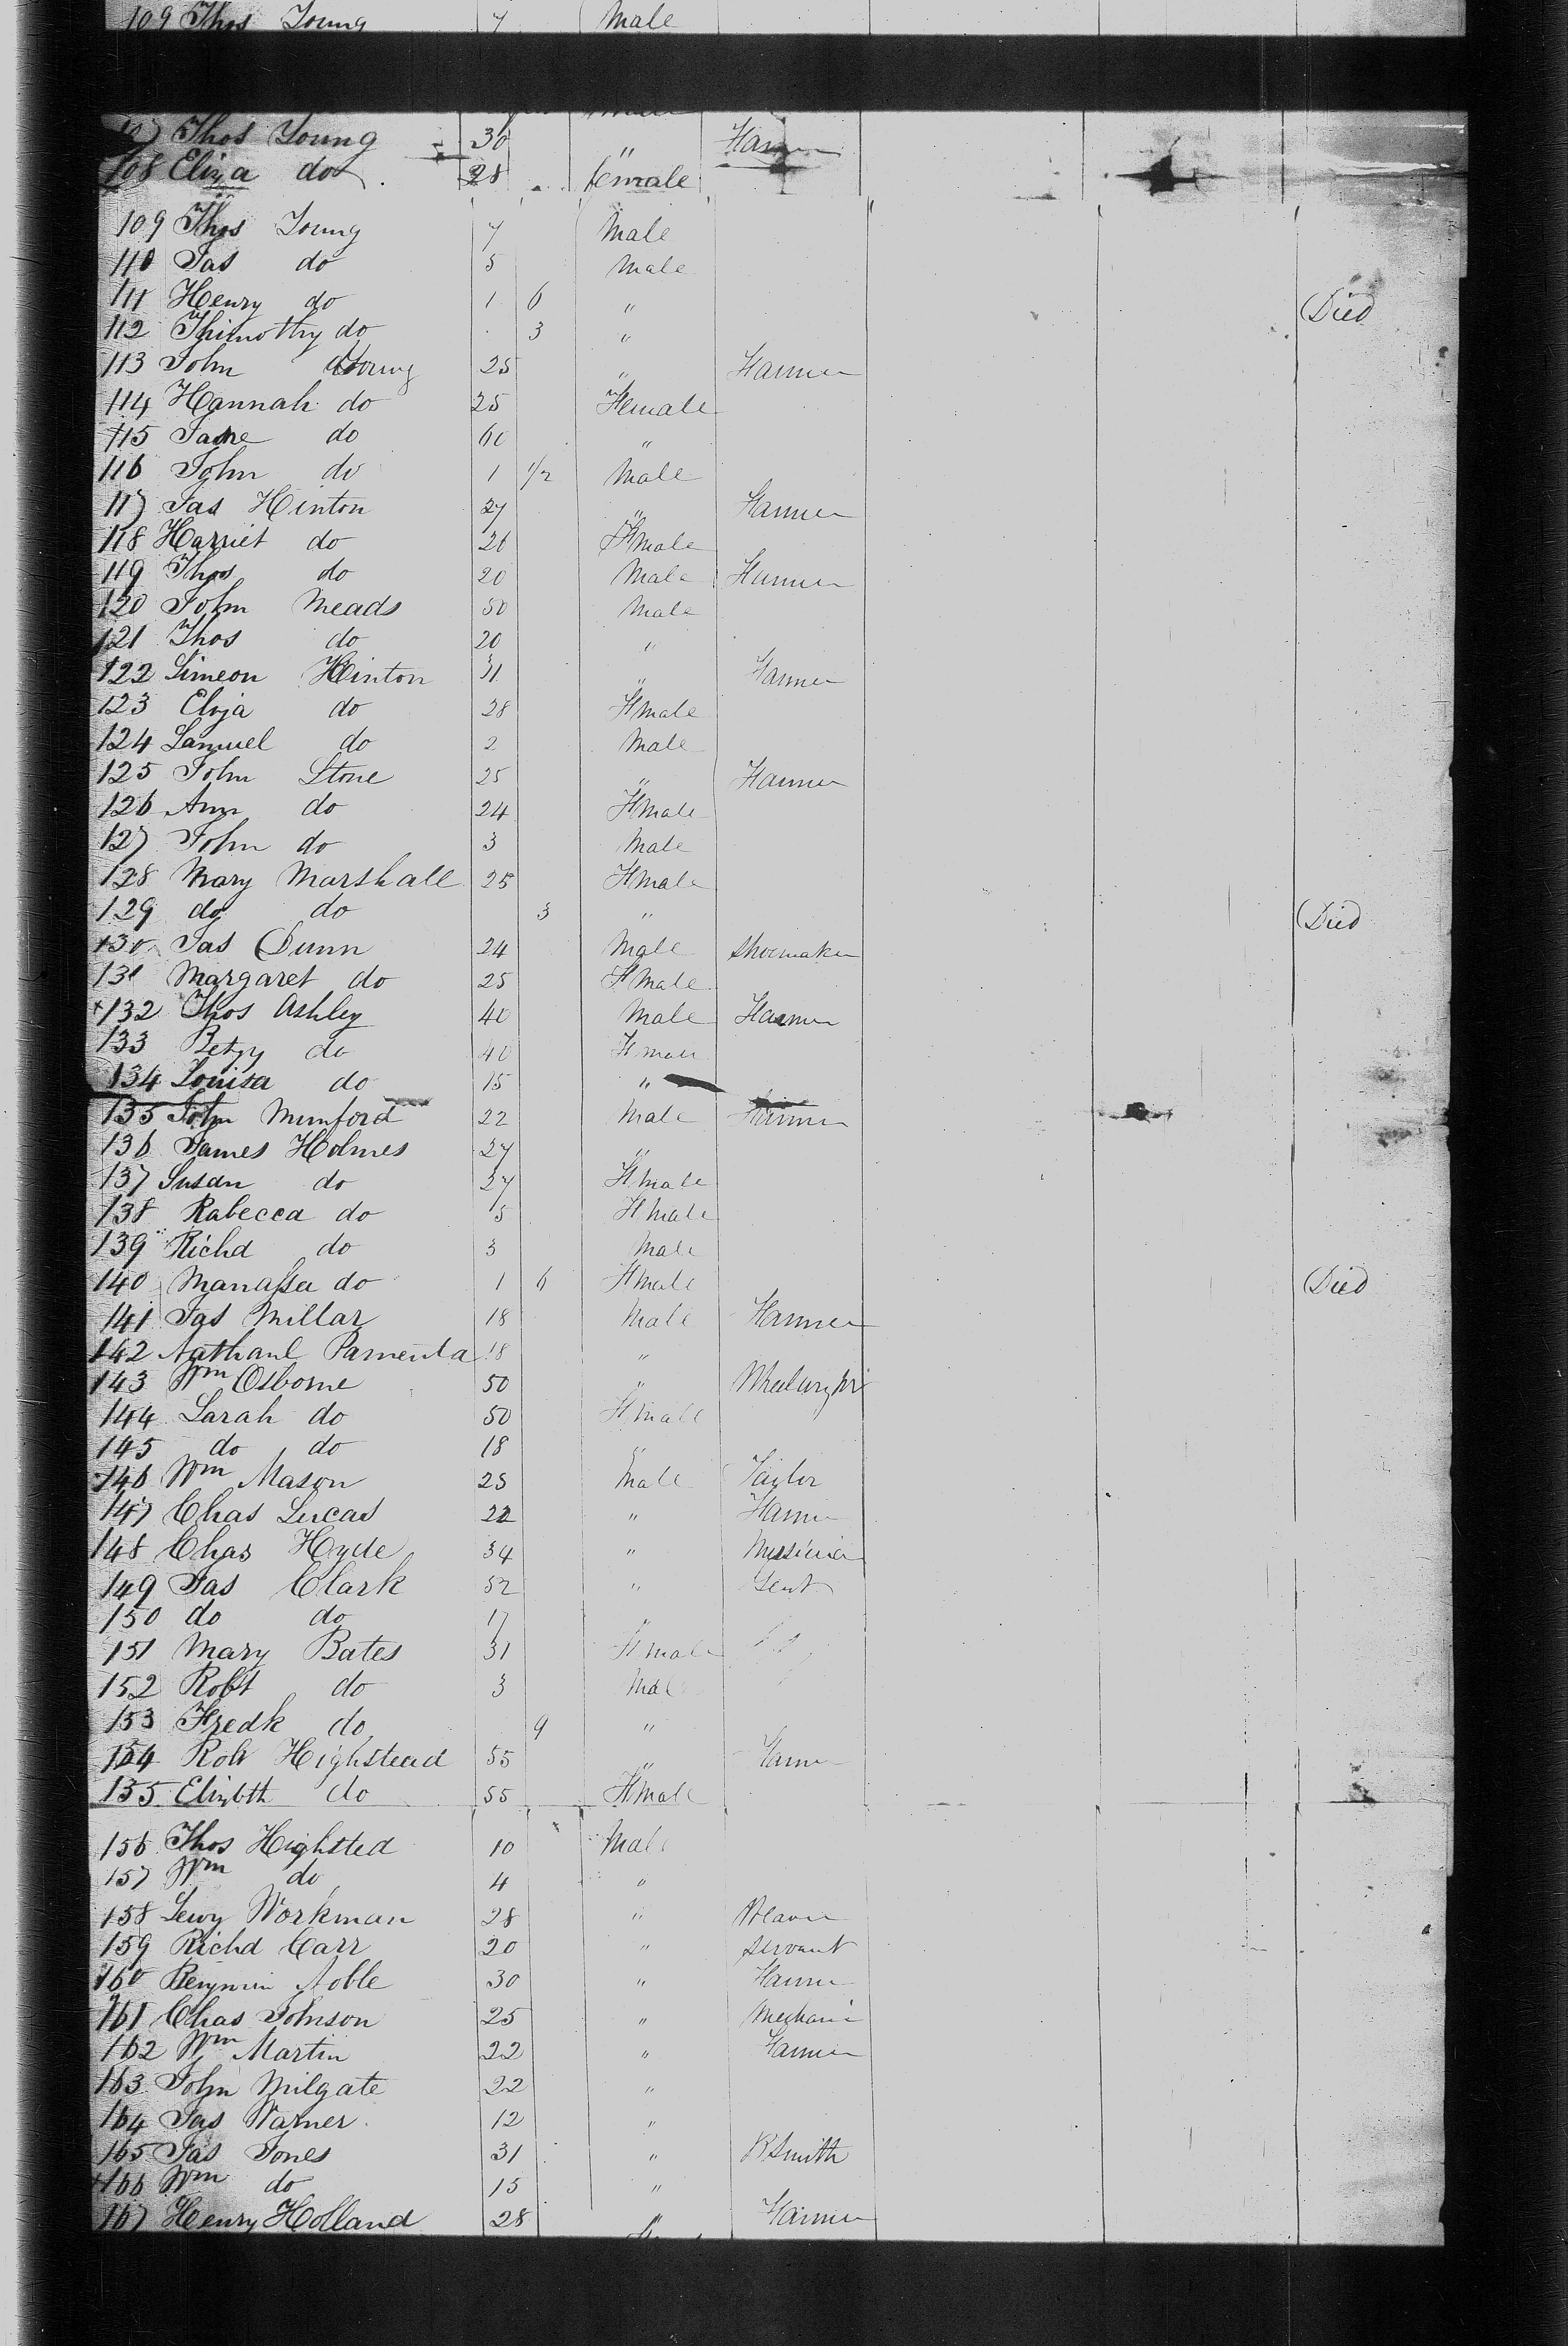 109 Thos Young 7 Male
107 Thos Young 30 " Farmer
108 Eliza do 28 female
109 Thos Young 7 Male
110 Jas do 5 Male
111 Henry do 1 6 " Died
112 Thimothy do 3 "
113 John Young 25 " Farmer
114 Hannah do 25 Female
115 Jane do 60 "
116 John do 1 1/2 Male
117 Jas Hinton 27 " Farmer
118 Harriet do 26 Female
119 Thos do 20 Male Farmer
120 John Meads 50 Male
121 Thos do 20 "
122 Simeon Hinton 31 " Farmer
123 Eliza do 28 Female
124 Samuel do 2 Male
125 John Stone 25 " Farmer
126 Ann do 24 Female
127 John do 3 Male
128 Mary Marshall 25 Female
129 do do 3 " Died
130 Jas Dunn 24 Male Shoemaker
131 Margaret do 25 Female
132 Thos Ashley 40 Male Farmer
133 Betsy do 40 Female
134 Louisa do 15 "
135 John Mumford 22 Male Farmer
136 James Holmes 27 "
137 Susan do 27 Female
138 Rabecca do 5 Female
139 Richd do 3 Male
140 Manassa do 1 6 Female Died
141 Jas Millar 18 Male Farmer
142 Nathanl Pamenta 18 "
143 Wm Osborne 50 " Wheelwright
144 Sarah do 50 Female
145 do do 18 "
146 Wm Mason 25 Male Taylor
147 Chas Lucas 22 " Farmer
148 Chas Hyde 34 " Musician
149 Jas Clark 52 " Gent
150 do do 17 "
151 Mary Bates 31 Female
152 Robt do 3 Male
153 Fredk do 9 "
154 Robt Highstead 55 " Farmer
155 Elizbth do 55 Female
156 Thos Highsted 10 Male
157 Wm do 4 "
158 Lewy Workman 28 " Weaver
159 Richd Carr 20 " Servant
160 Benjmin Noble 30 " Farmer
161 Chas Johnson 25 " Mechanic
162 Wm Martin 22 " Farmer
163 John Milgate 22 "
164 Jas Warner 12 "
165 Jas Jones 31 " B Smith
166 Wm do 15 "
167 Henry Holland 28 " Farmer